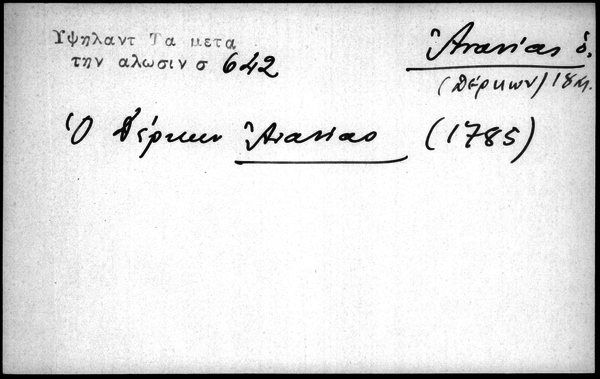 Υψηλαντ Τα μετα
την αλωσιν σ 642
Ἀνανίας ὁ.
(Δέρκων) 18 αι.
Ὁ Δέρκων Ἀνανίας (1785)